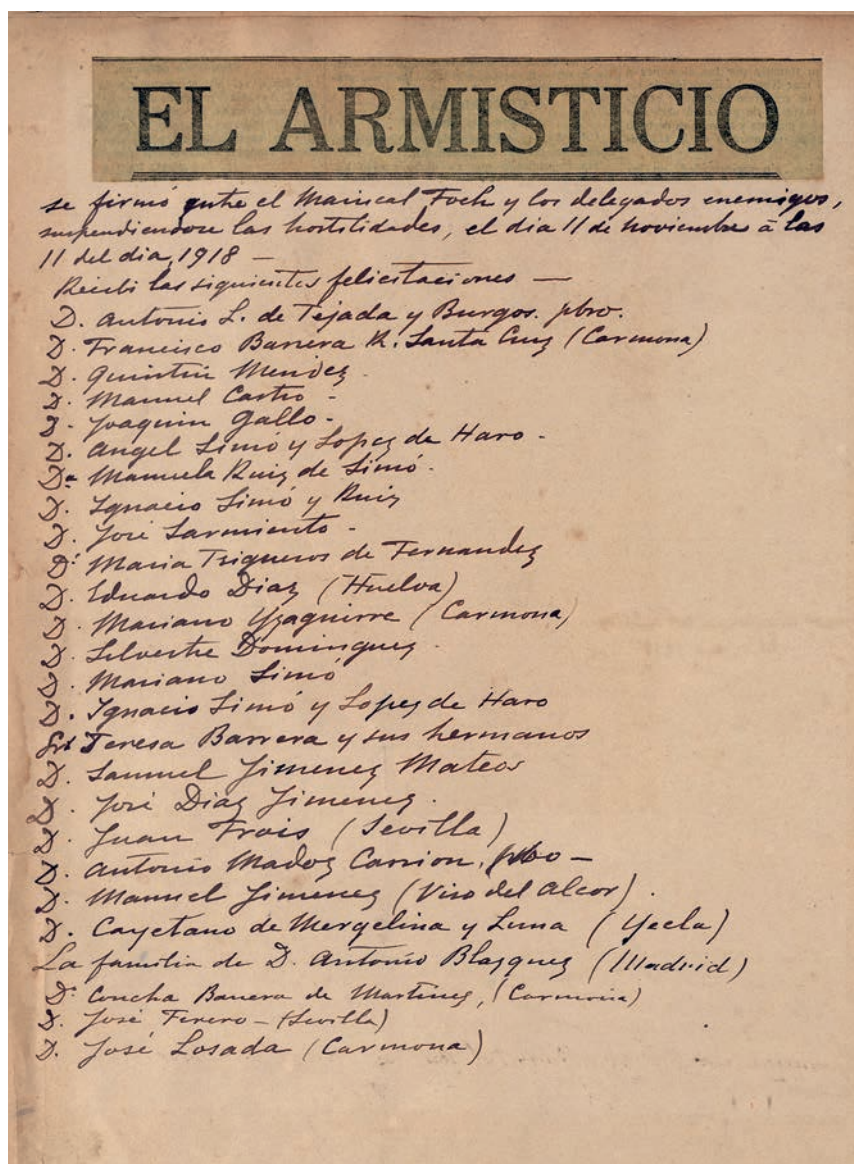 EL ARMISTICIO
se firmó entre el Mariscal Foch y los delegados enemigos,
suspendiendose las hostilidades, el dia 11 de noviembre á las
11 del dia, 1918 —
Recibi las siguientes felicitaciones —
D. Antonio L. de Tejada y Burgos. pbro.
D. Francisco Barrera R. Santa Cruz (Carmona)
D. Quintin Mendez -
D. Manuel Castro -
D. Joaquin Gallo -
D. Angel Simó y Lopez de Haro -
Da Manuela Ruiz de Simó -
D. Ignacio Simó y Ruiz
D. José Sarmiento -
Da Maria Trigueros de Fernandez
D. Eduardo Diaz (Huelva)
D. Mariano Yzaguirre (Carmona)
D. Silvestre Dominguez -
D. Mariano Simó
D. Ignacio Simó y Lopez de Haro
Teresa Barrera y sus hermanos
D. Samuel Jimenez Mateos
D. José Diaz Jimenez -
D. Juan (Sevilla)
D. Antonio Madoz Carrion, pbro —
D. Manuel Jimenez (Viso del Alcor) .
D. Cayetano de Mergelina y Luna (Yecla)
La familia de D. Antonio Blazquez (Madrid)
Da Concha Barrera de Martinez, (Carmona)
D. José - (Sevilla)
D. José Losada (Carmona)